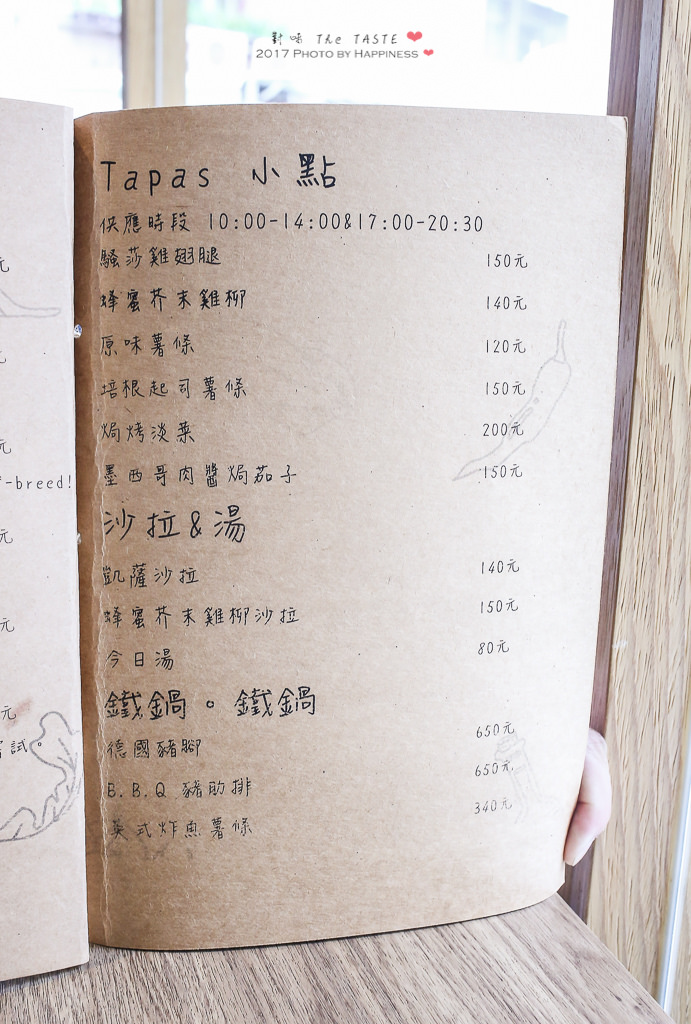 對味 The TASTE
2017 PHOTO BY HAPPINESS
Tapas 小點
供應時段 10:00-14:00&17:00-20:30
騷莎雞翅腿 150元
蜂蜜芥末雞柳 140元
原味薯條 120元
培根起司薯條 150元
焗烤淡菜 200元
墨西哥肉醬焗茄子 150元
沙拉&湯
凱薩沙拉 140元
蜂蜜芥末雞柳沙拉 150元
今日湯 80元
鐵鍋。鐵鍋
德國豬腳 650元
B.B.Q 豬肋排 650元
英式炸魚薯條 340元
元
元
-breed!
元
元
元
試